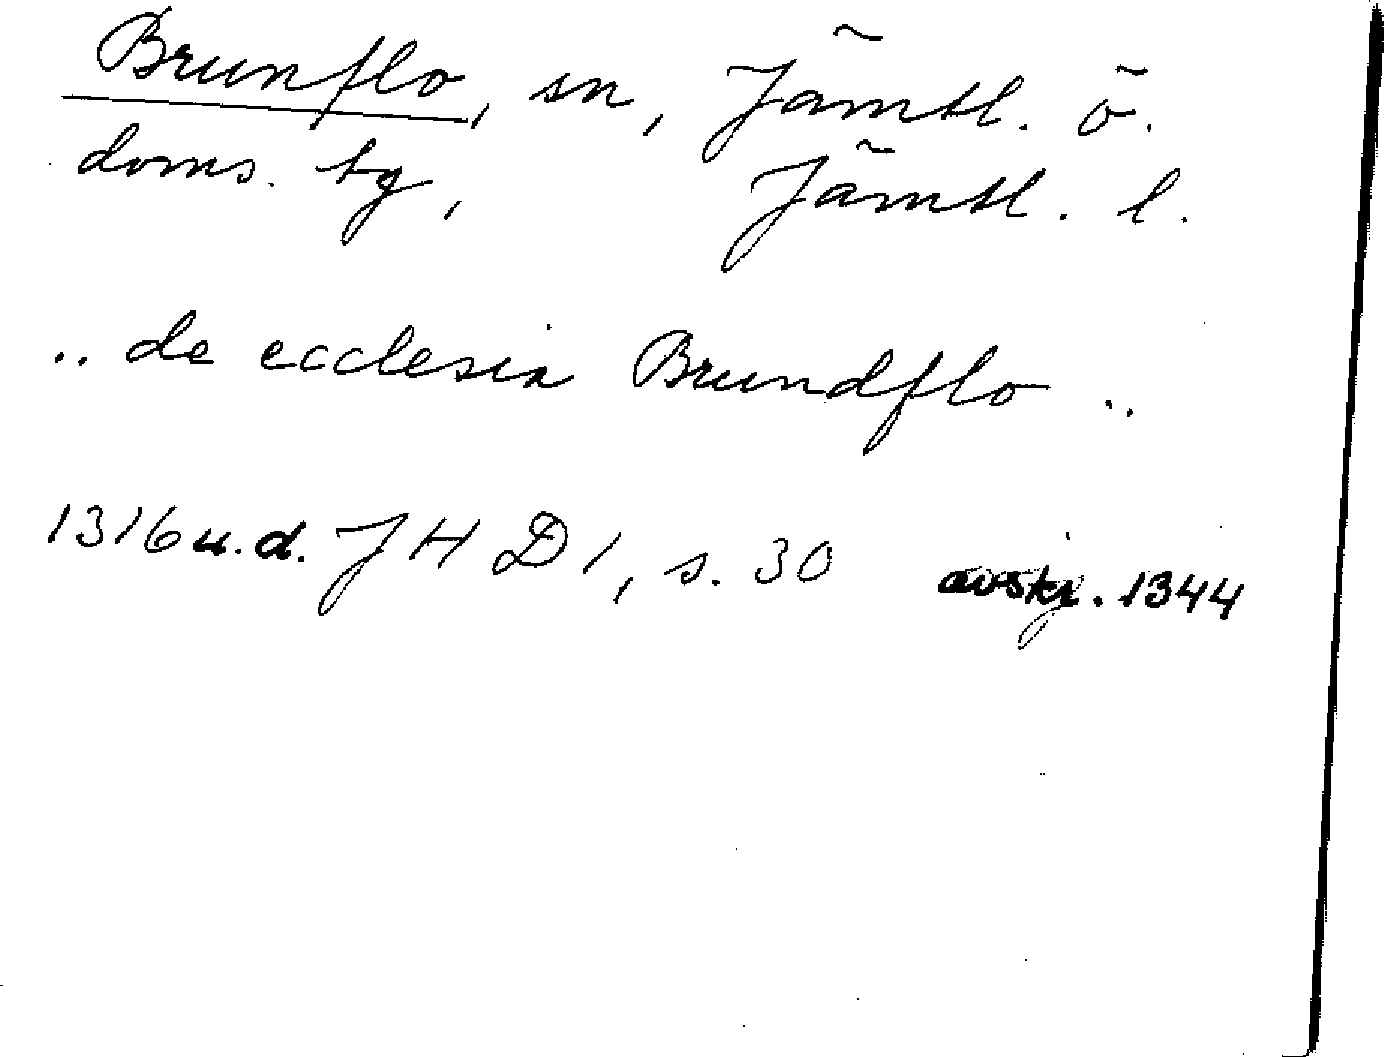 Brunflo, sn, Jämtl. ö.
doms. tg, Jämtl. l.
.. de ecclesia Brundflo ..
1316 u.d. JHD 1, s. 30 avskr. 1344